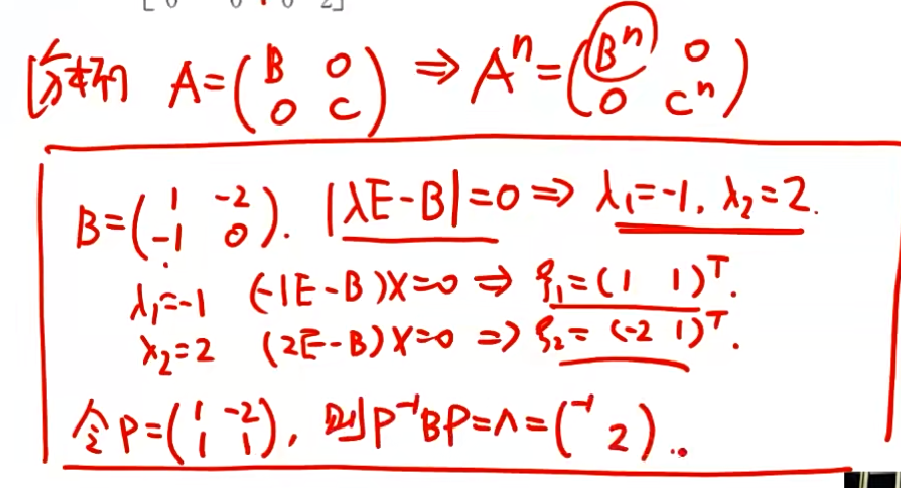 [分析] A=(B 0 0 C) ⇒ Aⁿ=(Bⁿ 0 0 Cⁿ)
B=(1 -2 -1 0). |λE-B|=0 ⇒ λ₁=-1, λ₂=2.
λ₁=-1 (-1E-B)X=0 ⇒ ξ₁=(1 1)ᵀ.
λ₂=2 (2E-B)X=0 ⇒ ξ₂=(-2 1)ᵀ.
令P=(1 -2 1 1), 则P⁻¹BP=Λ=(-1 2)..